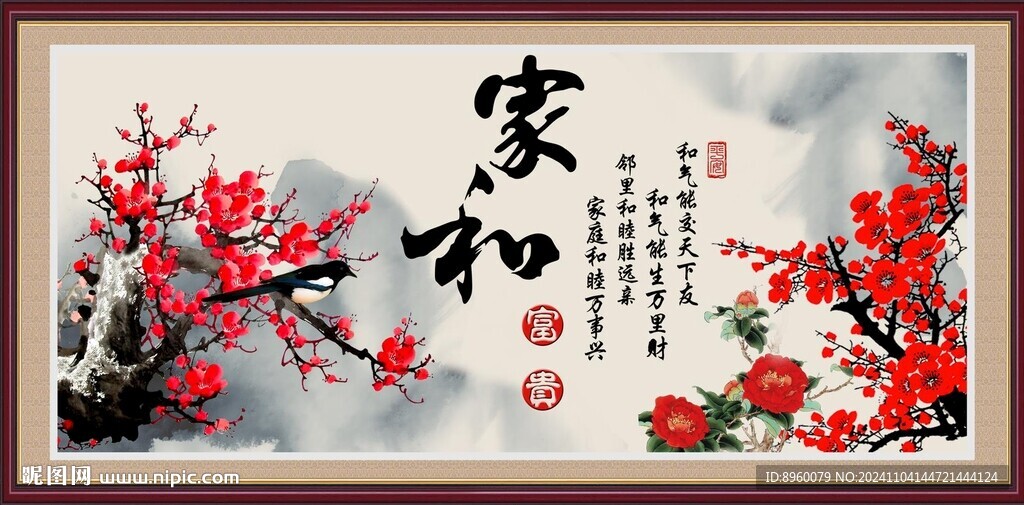 家和
富貴
和气能交天下友
和气能生万里财
邻里和睦胜远亲
家庭和睦万事兴
昵图网 www.nipic.com
ID:8960079 NO:20241104144721444124